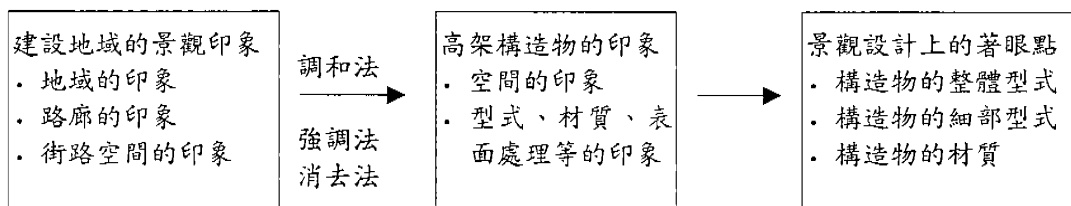 建設地域的景觀印象
． 地域的印象
． 路廊的印象
． 街路空間的印象
調和法
強調法
消去法
高架構造物的印象
． 空間的印象
． 型式、材質、表
面處理等的印象
景觀設計上的著眼點
． 構造物的整體型式
． 構造物的細部型式
． 構造物的材質